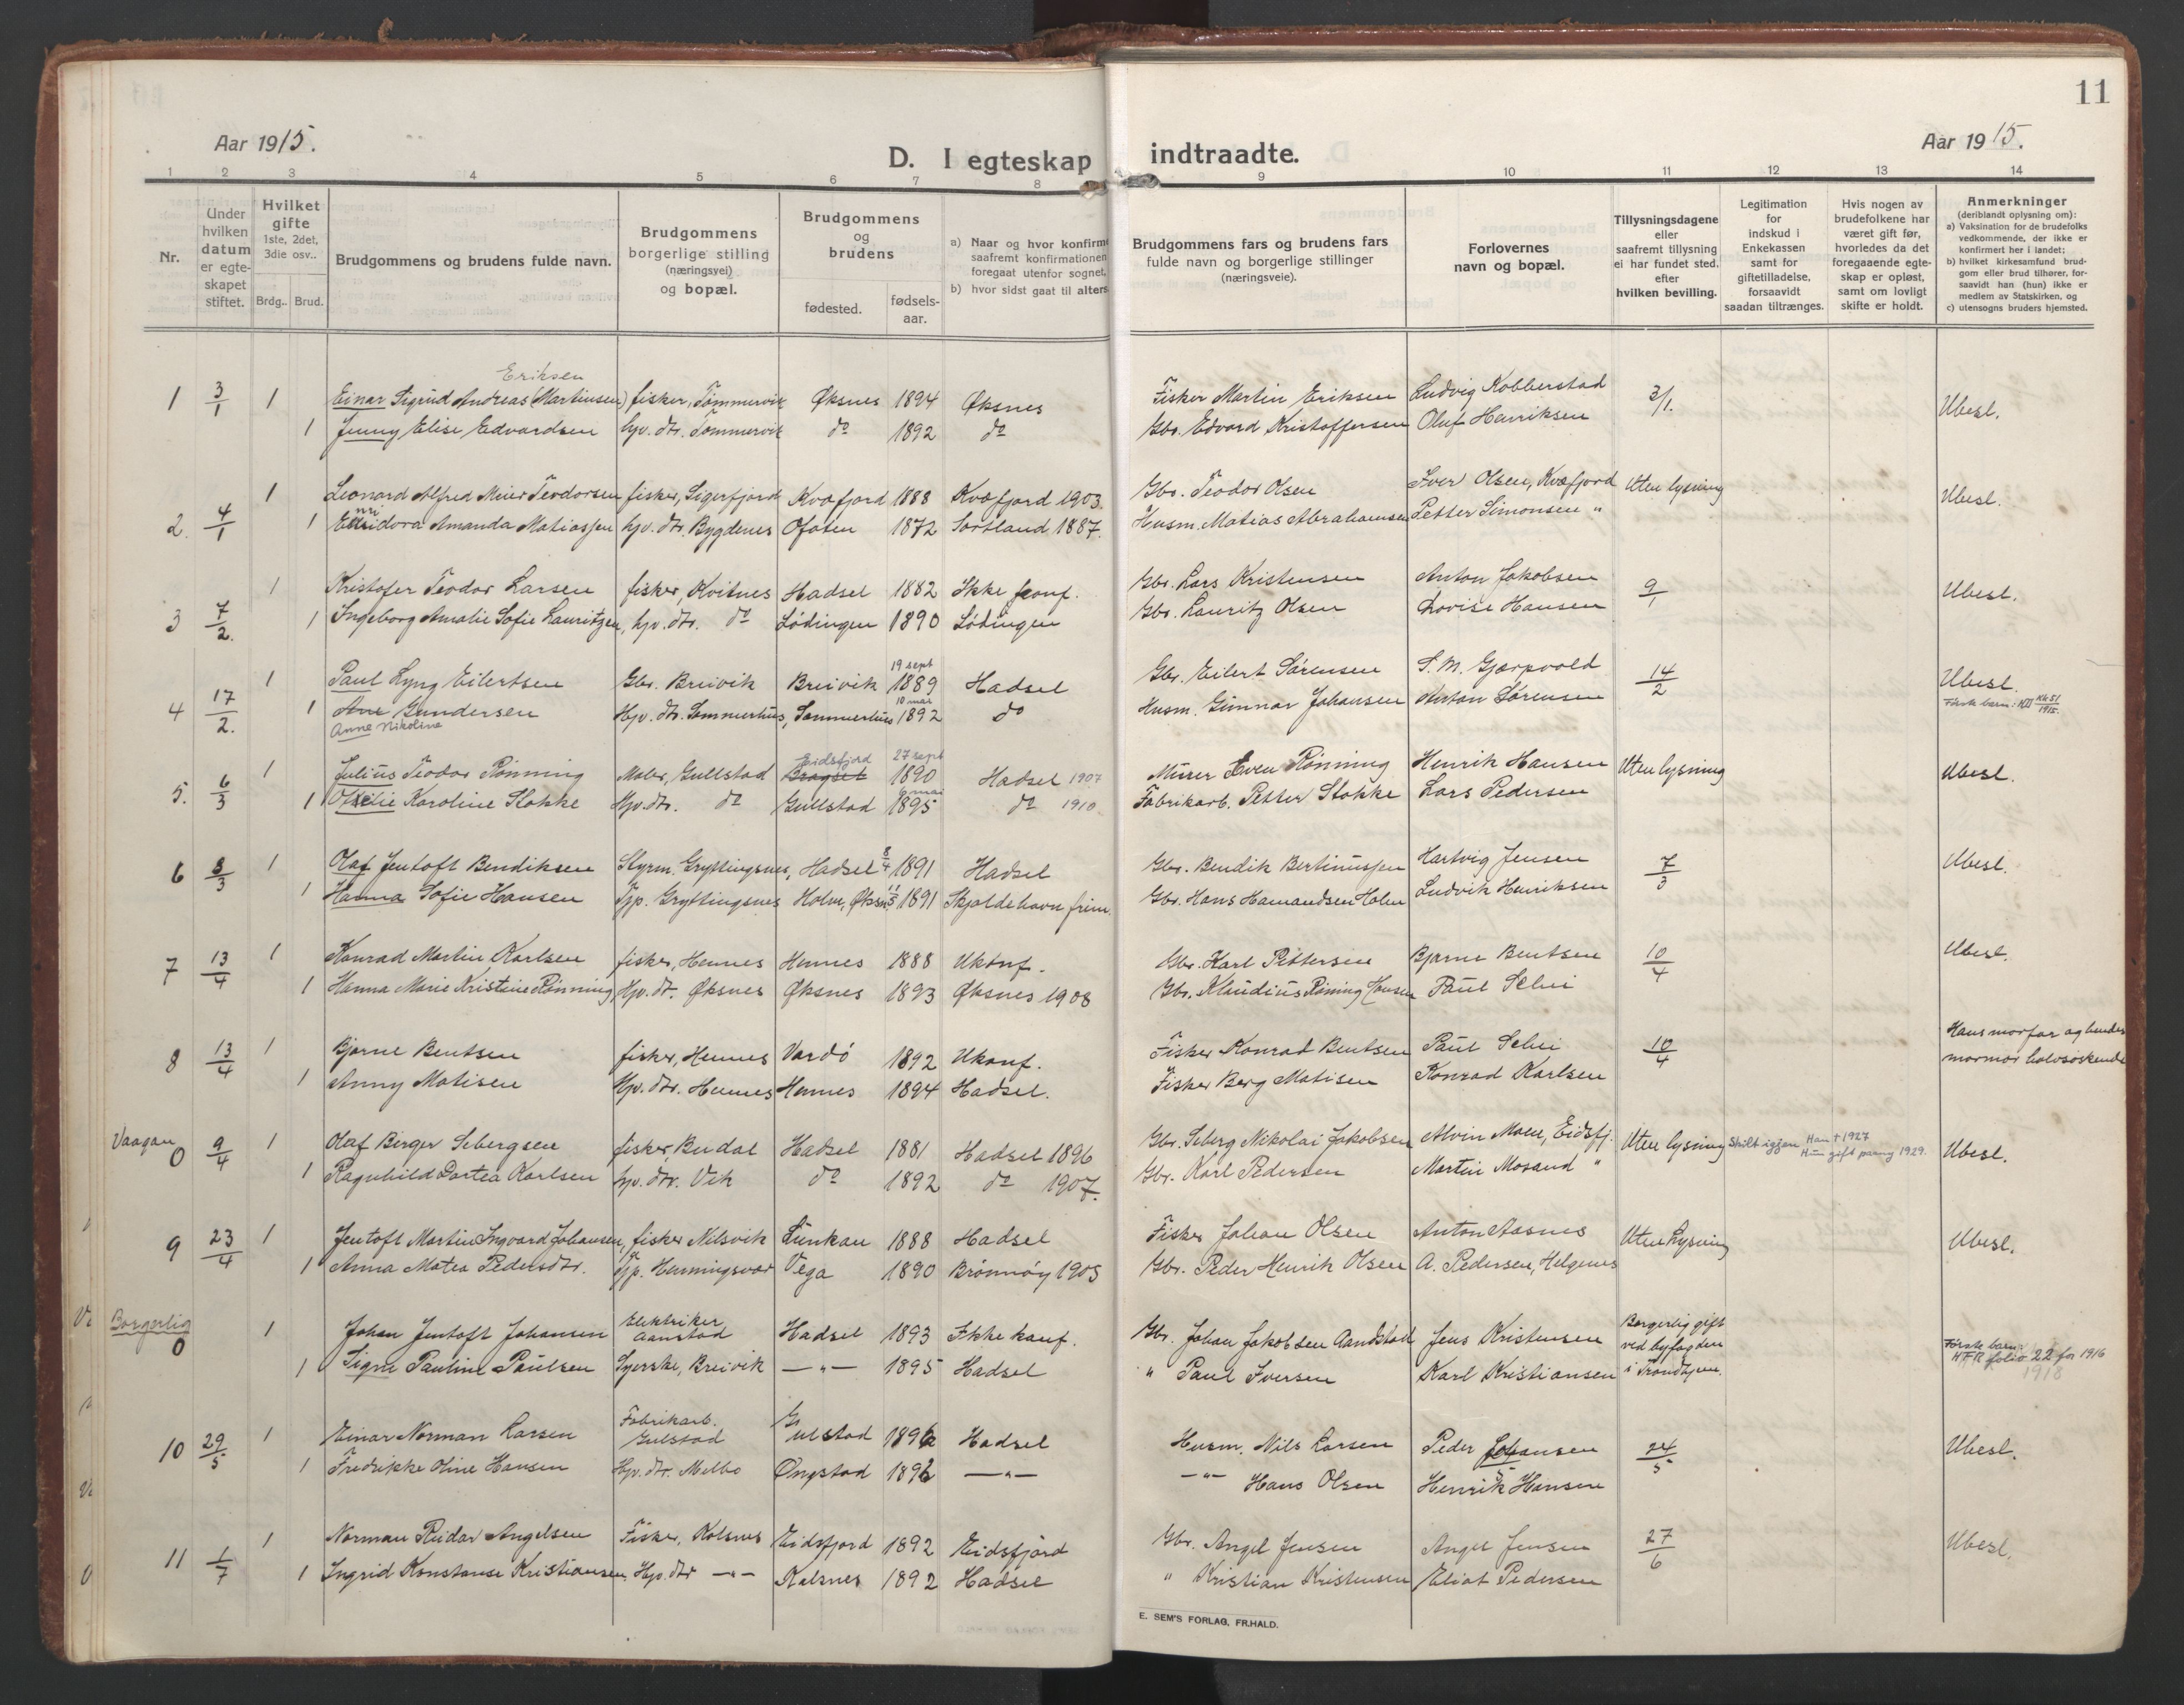 11
Aar 1915.
D. I egteskap indtraadte.
Aar 1915.
1 2 3 4 5 6 7 8 9 10 11 12 13 14
Nr.
Under hvilken datum er egte-skapet stiftet.
Hvilket gifte 1ste, 2det, 3die osv..
Brdg.. Brud.
Brudgommens og brudens fulde navn.
Brudgommens borgerlige stilling (næringsvei) og bopæl.
Brudgommens og brudens
fødested.
fødsels-aar.
a) Naar og hvor konfirm saafremt konfirmationen foregaat utenfor sognet,
b) hvor sidst gaat til alters
Brudgommens fars og brudens fars fulde navn og borgerlige stillinger (næringsveie).
Forlovernes navn og bopæl.
Tillysningsdagene eller saafremt tillysning ei har fundet sted. efter hvilken bevilling.
Legitimation for indskud i Enkekassen samt for giftetilladelse, forsaavidt saadan tiltrænges.
Hvis nogen av brudefolkene har været gift før, hvorledes da det foregaaende egte-skap er opløst, samt om lovligt skifte er holdt.
Anmerkninger (deriblandt oplysning om):
a) Vaksination for de brudefolks vedkommende, der ikke er konfirmert her i landet;
b) hvilket kirkesamfund brud-gom eller brud tilhører, for-saavidt han (hun) ikke er medlem av Statskirken, og
c) utensogns bruders hjemsted.
Eriksen
1 3/1 1 Einar Sigrud Andreas (Martinsen) fisker, Tømmervik Øksnes 1894 Øksnes Fisker Martin Eriksen Ludvig Kobberstad 3/1. Ubesl.
1 Jenny Elise Edvardsen hjv. dtr. Tømmervik do 1892 do Gbr. Edvard Kristoffersen Oluf Henriksen
1 Leonard Alfred Meier Teodorsen fisker, Sigerfjord Kvæfjord 1888 Kvæfjord 1903. Gbr. Teodor Olsen Iver Olsen, Kvæfjord Uten lysning Ubesl.
2. 4/1 1 Amanda Matiassen hjv. dtr. Bygdenes Ofoten 1872 Sortland 1887. Husm. Matias Abrahamsen Petter Simonsen "
1 Kristofer Teodor Larsen fisker, Kvitnes Hadsel 1882 Ikke konf. Gbr. Lars Kristensen Anton Jakobsen 9/1 Ubesl.
3 7/2. 1 Ingeborg Amalie Sofie Lauritzen, hjv. dtr. do Lødingen 1890 Lødingen Gbr. Lauritz Olsen Lovise Hansen
19 sept
1 Paul Lyng Eilertsen Gbr. Breivik Breivik 1889 Hadsel Gbr. Eilert Sørensen S. M. Gjærpvold 14/2 Ubesl.
10 mai
4 17/2. 1 Ane Gundersen Hjv. dtr. Sommerhus, Sommerhus 1892 do Husm. Gunnar Johansen Anton Sørensen Første barn: KB 51/1915.
Anne Nikoline
Eidsfjord 27 sept
1 Julius Teodor Rønning Maler, Gullstad Bragset 1890 Hadsel 1907 Murer Even Rønning Henrik Hansen Uten lysning Ubesl.
6 mai
5. 6/3 1 Otelie Karoline Stokke Hjv. dtr. do Gullstad 1895 do 1910. Fabrikarb. Petter Stokke Lars Pedersen
6 8/3 1 Olaf Jentoft Bendiksen Styrm. Gryttingsnes, Hadsel 8/4 1891 Hadsel Gbr. Bendik Bertinussen Hartvig Jensen 7/3 Ubesl.
1 Hanna Sofie Hansen Tjp. Gryttingsnes Holm, Øksn 1891 Skjoldehavn frim. Gbr. Hans Hamandsen Holm Ludvik Henriksen
7 13/4 1 Konrad Martin Karlsen fisker, Hennes Hennes 1888 Ukonf. Gbr. Karl Pettersen Bjarne Bentsen 10/4 Ubesl.
1 Hanna Marie Kristine Rønning Hjv. dtr. Øksnes Øksnes 1893 Øksnes 1908 Gbr. Klaudius Røning Hansen Paul Selvi
8 13/4 1 Bjarne Bentsen fisker, Hennes Vardø 1892 Ukonf. Fisker Konrad Bentsen Paul Selvi 10/4 Hans morfar og hendes
1 Anny Matisen Hjv. dtr. Hennes Hennes 1894 Hadsel. Fisker Berg Matisen Konrad Karlsen mormor halvsøskende
Vaagan 0 9/4 1 Olaf Berger Sebergsen fisker, Budal Hadsel 1881 Hadsel 1896 Gbr. Seberg Nikolai Jakobsen Alvin Moen, Eidsfj. Uten lysning Skilt igjen Han + 1927 Ubesl.
1 Ragnhild Dortea Karlsen hjv. dtr. Vik do 1892 do 1907. Gbr. Karl Pedersen Martin Mosand " Hun gift paany 1929.
9 23/4 1 Jentoft Martin Ingvard Johansen, fisker Nilsvik Lunkan 1888 Hadsel Fisker Johan Olsen Anton Aasnes Uten Lysning Ubesl.
1 Anna Matea Pedersdtr. Tjp. Henningsvær Vega 1890 Brønnøy 1905 Gbr. Peder Henrik Olsen A. Pedersen, Helgenes
Borgerlig 0 1 Johan Jentoft Johansen Elektriker Aanstad Hadsel 1893 Ikke konf. Gbr. Johan Jakobsen Aandstad Jens Kristensen Borgerlig gift ved byfogden i Trondhjem.
1 Signe Pauline Paulsen Syerske, Breivik —"— 1895 Hadsel " Paul Iversen Karl Kristiansen Første barn: HFR folio 22 for 1916
1918
10 29/5 1 Einar Norman Larsen Fabrikarb. Gulstad Gulstad 1892 Hadsel Husm. Nils Larsen Peder Johansen 24/5 Ubesl.
1 Fredrikke Oline Hansen Hjv. dtr. Melbo Øngstad 1896 —"— —"— Hans Olsen Henrik Hansen
11 1/7 1 Norman Reidar Angelsen Fisker, Kalsnes Eidsfjord 1892 Eidsfjord Gbr. Angel Jensen Angel Jensen 27/6 Ubesl.
1 Ingrid Konstanse Kristiansen Hjv. dtr —"— Kalsnes 1892 Hadsel " Kristian Kristensen Eliot Pedersen
E. SEM'S FORLAG, FR.HALD.